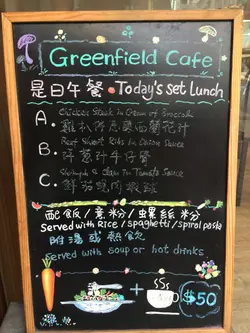 Greenfield Cafe
是日午餐 • Today's set Lunch
A. Chicken Steak in Cream of Broccoli
雞扒 西蘭花汁
B. Beef Short Ribs in Onion Sauce
洋葱汁牛仔骨
C. Shrimp & Clam in Tomato Sauce
鮮茄
配飯/意粉/螺絲粉
Served with Rice/spaghetti/spiral pasta
附湯或熱飲
Served with soup or hot drinks
+ $50